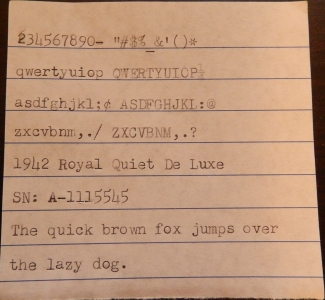 234567890- "#$%_&'()*
qwertyuiop QWERTYUIOP½
asdfghjkl;¢ ASDFGHJKL:@
zxcvbnm,./ ZXCVBNM,.?
1942 Royal Quiet De Luxe
SN: A-1115545
The quick brown fox jumps over
the lazy dog.